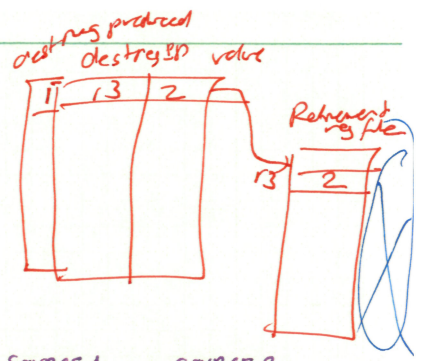 dest reg produced
dest reg ID value
1 r3 2
Retirement
reg file
r3 2